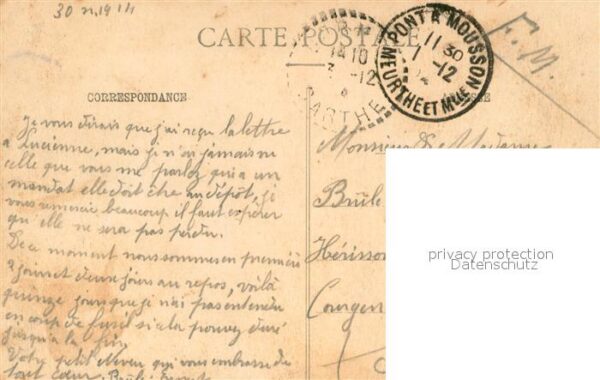 30 n. 1914
CARTE POSTALE
F. M.
14 10
3 -12
SARTHE
PONT A MOUSSON
11 30
1 -12
14
MEURTHE ET MLLE
CORRESPONDANCE
Je vous dirais que j'ai reçu la lettre
a Lucienne, mais je n'ai jamais vu
celle que vous me parlez qui a un
mandat elle doit être au dépôt, je
vous remercie beaucoup il faut espérer
qu'elle ne sera pas perdu.
De ce moment nous sommes en première
2 jours et deux jours au repos, voilà
quinze jours que je n'ai pas entendu
un coup de fusil si cela pouvez duré
jusqu'a la fin.
Votre petit Neveu qui vous embrasse de
tout cœur. Brûlé
Monsieur & Madame
Brûlé
Hérisson
Courgen
privacy protection
Datenschutz